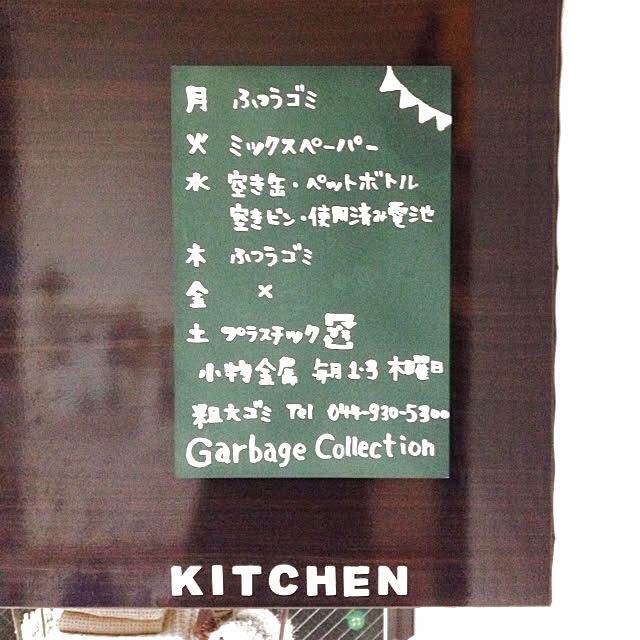 月 ふつうゴミ
火 ミックスペーパー
水 空き缶・ペットボトル
空きビン・使用済み電池
木 ふつうゴミ
金 ×
土 プラスチック
小物金属 毎月1・3 木曜日
粗大ゴミ Tel 044-930-5300
Garbage Collection
KITCHEN